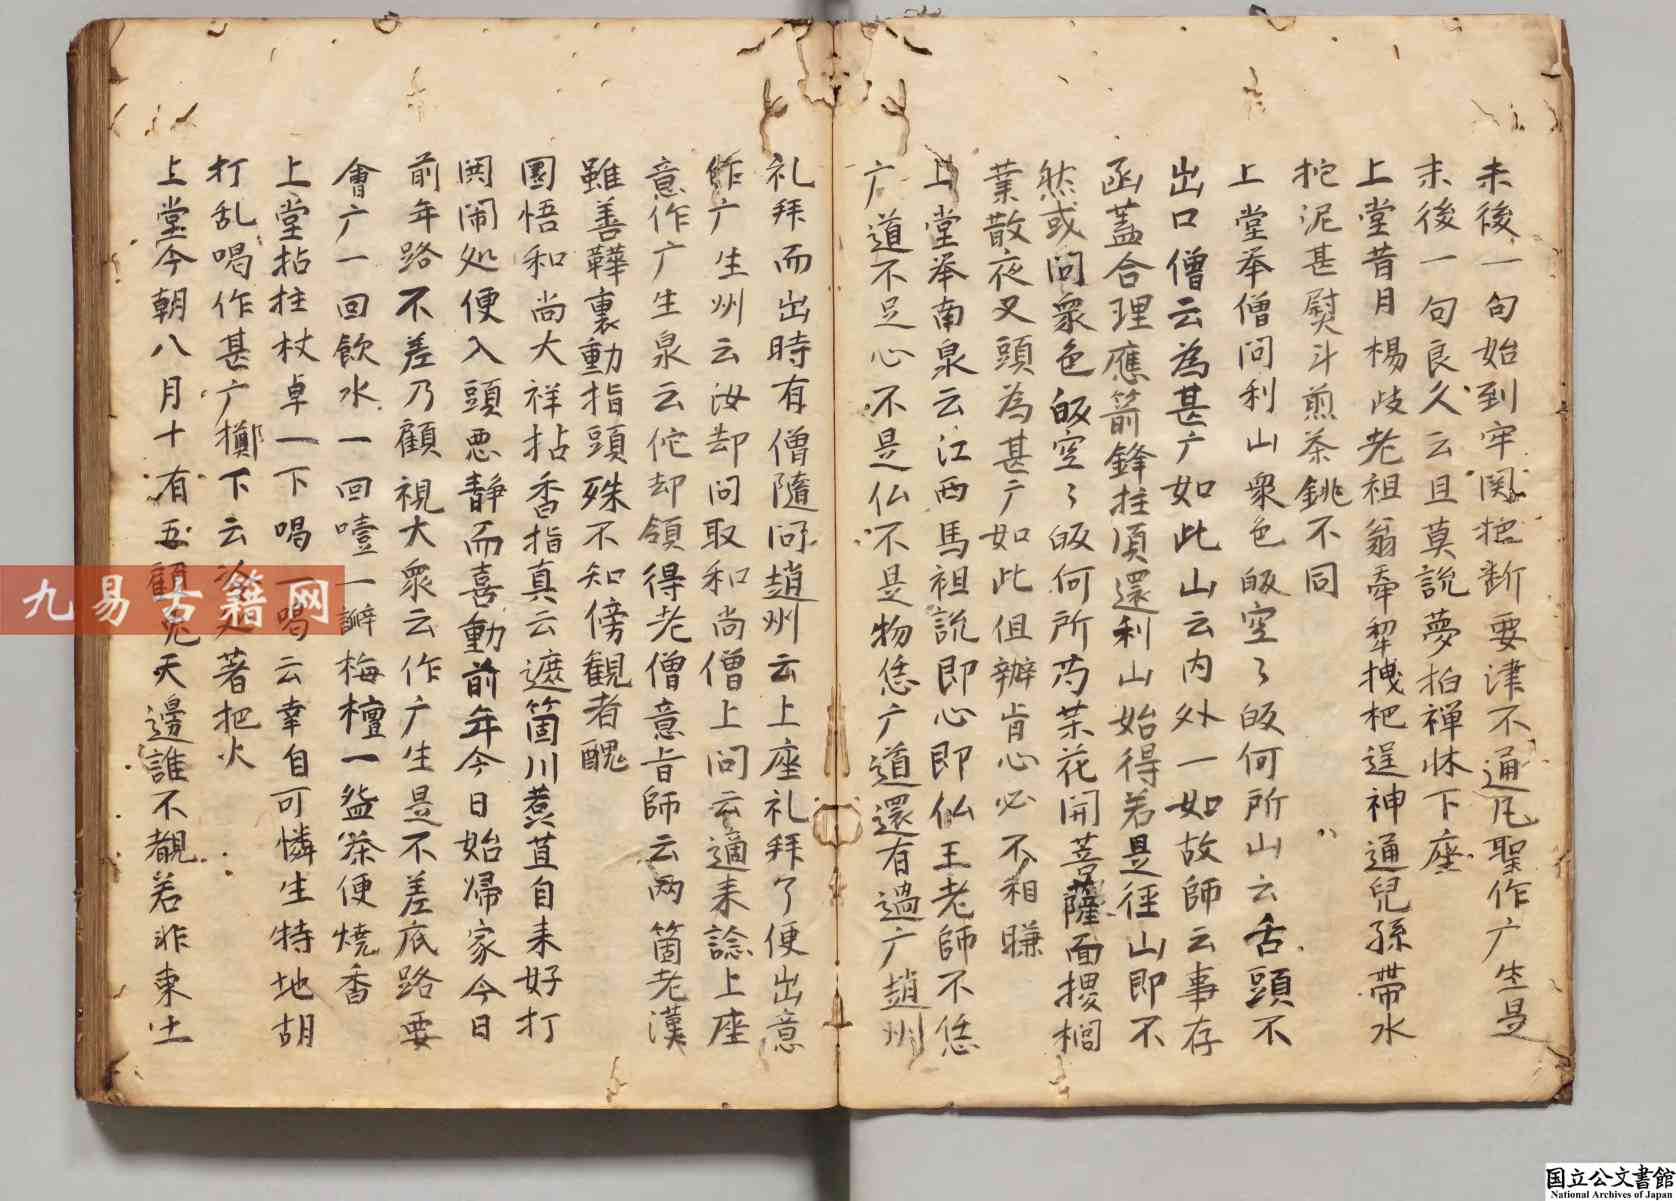 末後一句始到牢関把断要津不通凡聖作广生是
末後一句良久云且莫説夢拍禅牀下座
上堂昔月楊歧老祖翁牽犂拽杷逞神通兒孫帯水
拕泥甚熨斗煎茶銚不同
上堂举僧问利山衆色皈空々皈何所山云舌頭不
出口僧云為甚广如此山云内外一如故師云事存
函蓋合理應箭鋒拄須還利山始得若是径山即不
然或问衆色皈空々皈何所芍茱花開菩薩面㮶榈
葉散夜叉頭為甚广如此但辦肯心必不相賺
上堂举南泉云江西馬祖説即心即仏王老師不恁
广道不是心不是仏不是物恁广道還有過广趙州
礼拜而出時有僧隨问趙州云上座礼拜了便出意
作广生州云汝却问取和尚僧上问云適来諗上座
意作广生泉云佗却領得老僧意旨師云两箇老漢
雖善韡裏動指頭殊不知傍観者醜
圜悟和尚大祥拈香指真云遮箇川藞苴自来好打
閧鬧処便入頭悪静而喜動前年今日始帰家今日
前年路不差乃顧視大衆云作广生是不差底路要
會广一回飲水一回噎一瓣栴檀一盌茶便燒香
上堂拈拄杖卓一下喝一喝云幸自可憐生特地胡
打乱喝作甚广擲下云冷处著把火
上堂今朝八月十有五顧兎天邊誰不覩若非東土
九易古籍网
国立公文書館
National Archives of Japan